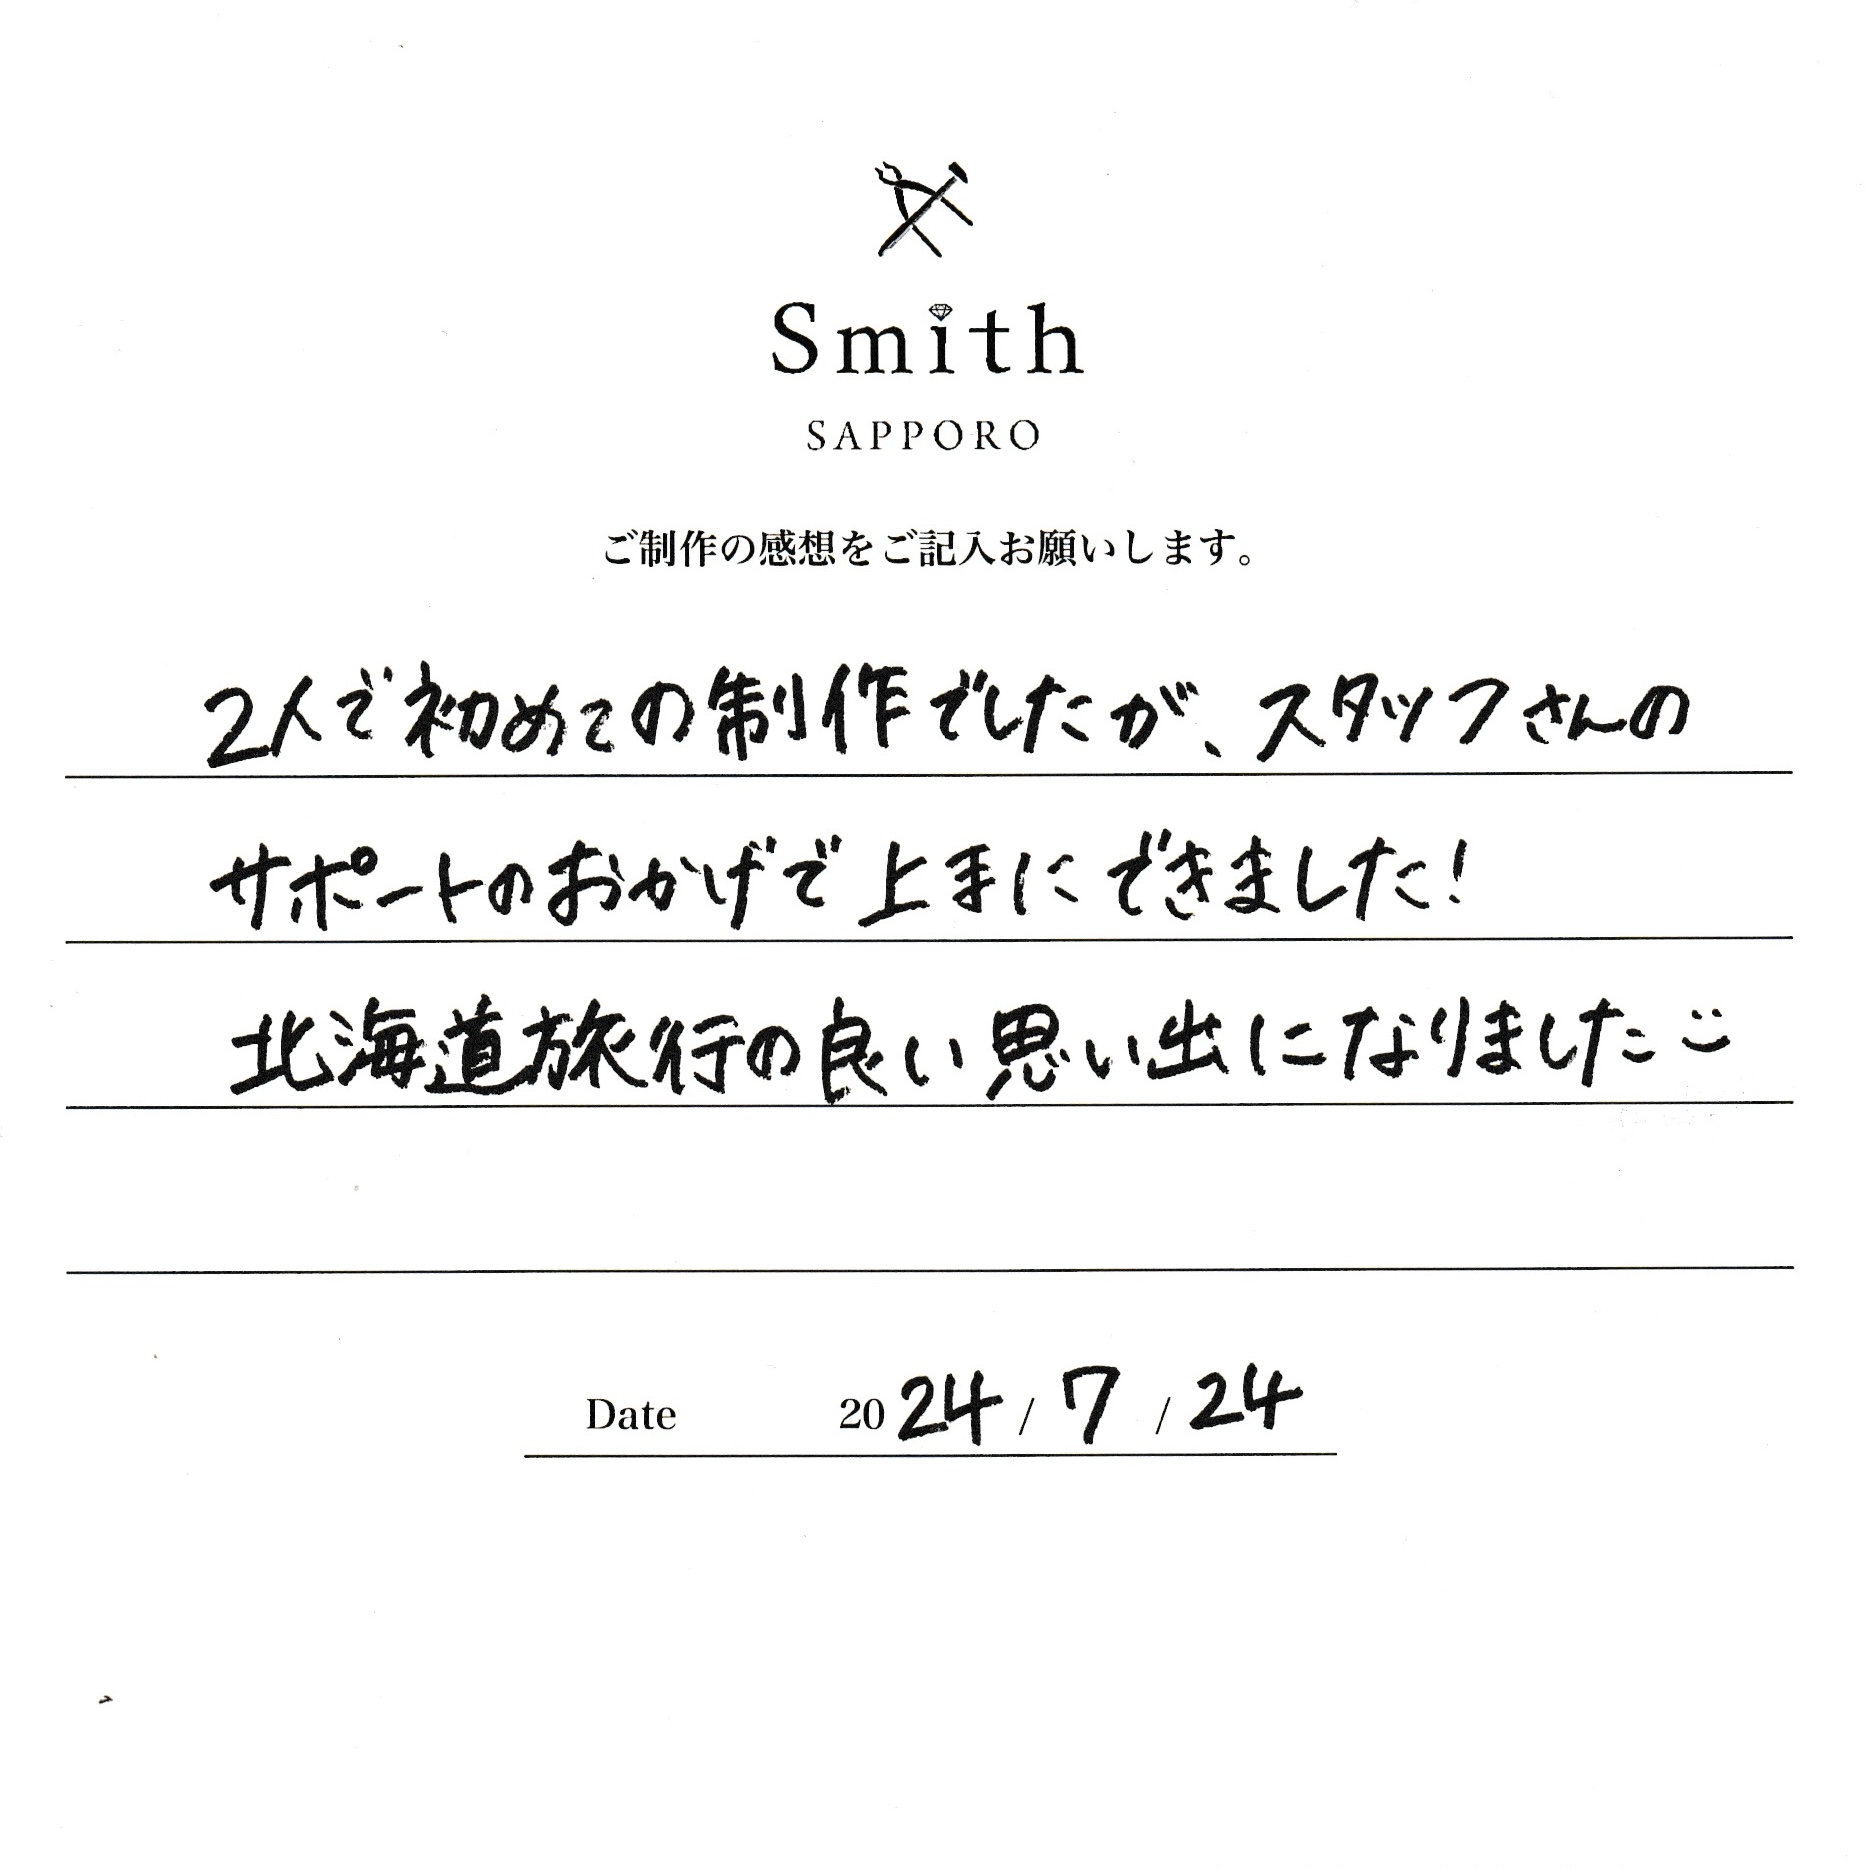 Smith
SAPPORO
ご制作の感想をご記入お願いします。
2人で初めての制作でしたが、スタッフさんの
サポートのおかげで上手にできました!
北海道旅行の良い思い出になりました
Date 2024/7/24